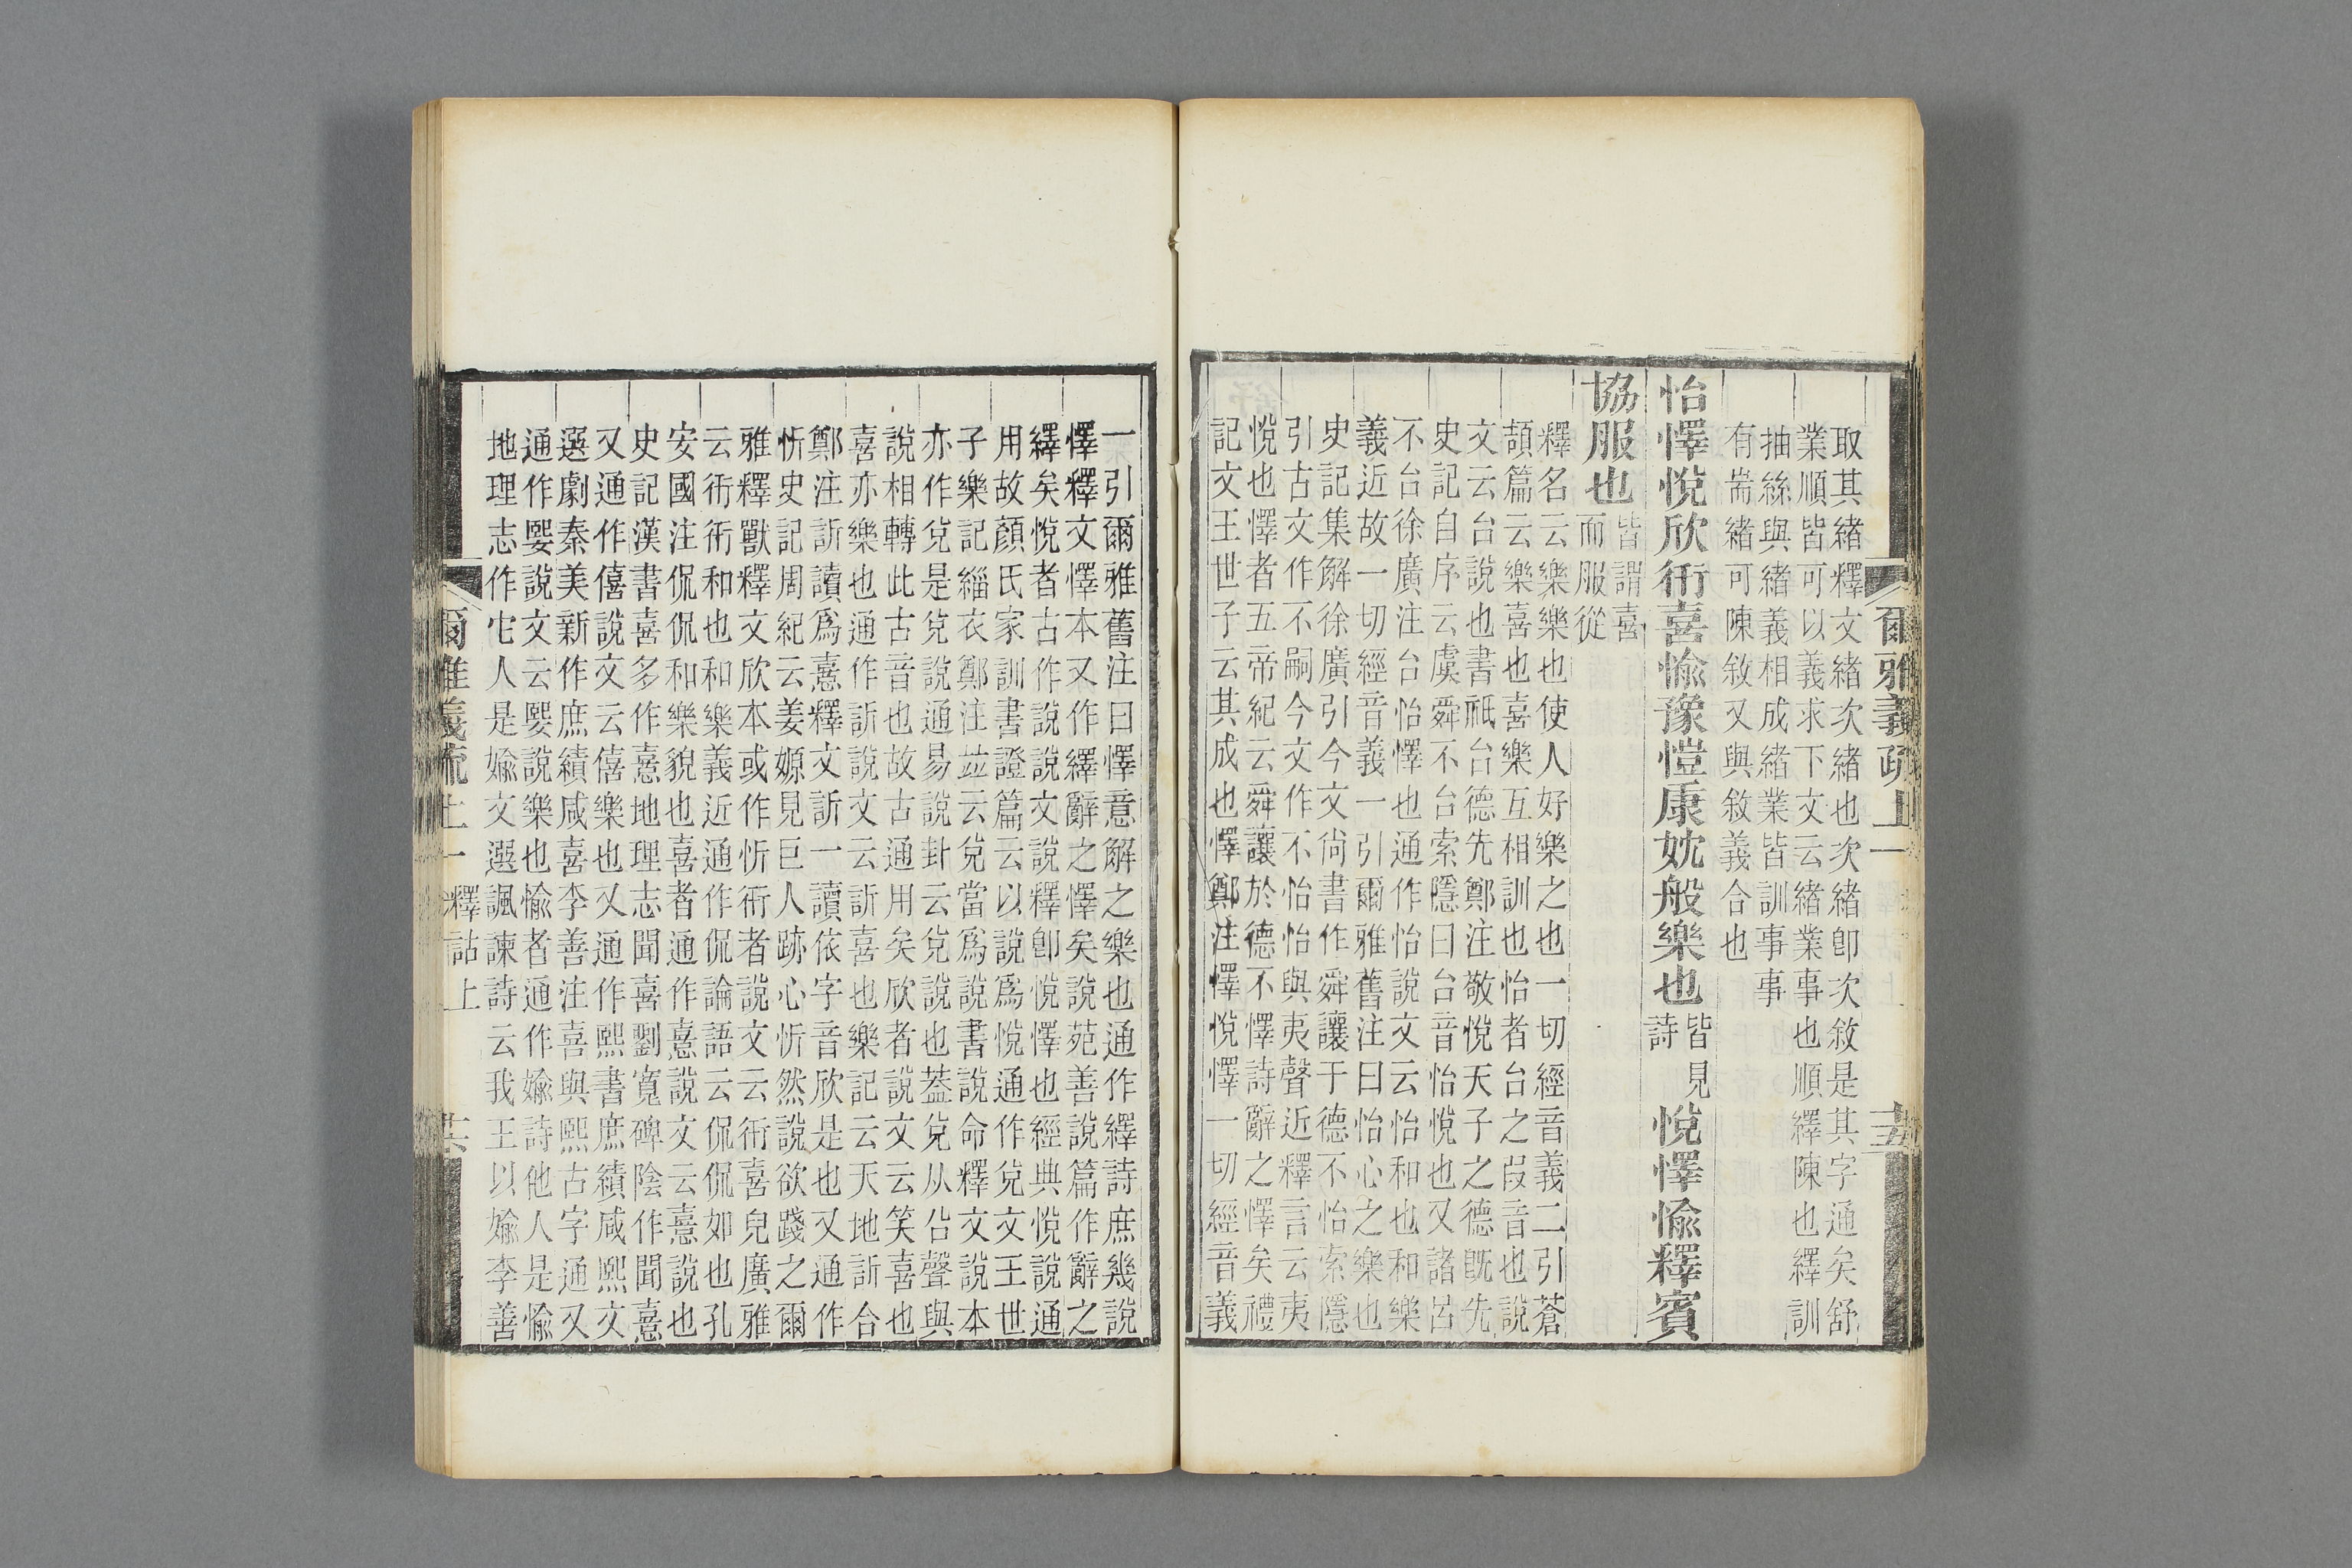 爾雅義疏上一
十五
取其緒釋文緒次緒也次緒卽次敘是其字通矣舒
業順皆可以義求下文云緒業事也順繹陳也繹訓
抽絲與緒義相成緒業皆訓事事
有耑緒可陳敘又與敘義合也
怡懌悅欣衎喜愉豫愷康妉般樂也皆見詩悅懌愉釋賓
協服也皆謂喜而服從
釋名云樂樂也使人好樂之也一切經音義二引蒼
頡篇云樂喜也喜樂互相訓也怡者台之叚音也說
文云台說也書祇台德先鄭注敬悅天子之德既先
史記自序云虞舜不台索隱曰台音怡悅也又諸呂
不台徐廣注台怡懌也通作怡說文云怡和也和樂
義近故一切經音義一引爾雅舊注曰怡心之樂也
史記集解徐廣引今文尙書作舜讓于德不怡索隱
引古文作不嗣今文作不怡怡與夷聲近釋言云夷
悅也懌者五帝紀云舜讓於德不懌詩辭之懌矣禮
記文王世子云其成也懌鄭注懌悅懌一切經音義
一引爾雅舊注曰懌意解之樂也通作繹詩庶幾說
懌釋文懌本又作繹辭之懌矣說苑善說篇作辭之
繹矣悅者古作說說文說釋卽悅懌也經典悅說通
用故顏氏家訓書證篇云以說爲悅通作兌文王世
子樂記緇衣鄭注竝云兌當爲說書說命釋文說本
亦作兌是兌說通易說卦云兌說也葢兌从㕣聲與
說相轉此古音也故古通用矣欣者說文云笑喜也
喜亦樂也通作訢說文云訢喜也樂記云天地訢合
鄭注訢讀爲憙釋文訢一讀依字音欣是也又通作
忻史記周紀云姜嫄見巨人跡心忻然說欲踐之爾
雅釋獸釋文欣本或作忻衎者說文云衎喜皃廣雅
云衎衎和也和樂義近通作侃論語云侃侃如也孔
安國注侃侃和樂貌也喜者通作憙說文云憙說也
史記漢書喜多作憙地理志聞喜劉寬碑陰作聞憙
又通作僖說文云僖樂也又通作熙書庶績咸熙文
選劇秦美新作庶績咸喜李善注喜與熙古字通又
通作娶說文云娶說樂也愉者通作媮詩他人是愉
地理志作它人是媮文選諷諫詩云我王以媮李善
爾雅義疏上一釋詁上
十六